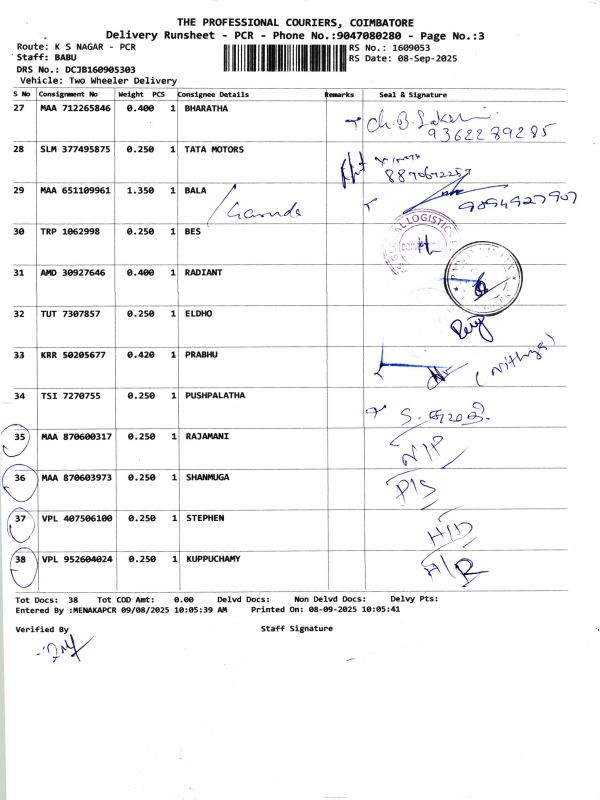 THE PROFESSIONAL COURIERS, COIMBATORE
Delivery Runsheet - PCR - Phone No.:9047080280 - Page No.:3
Route: K S NAGAR - PCR RS No.: 1609053
Staff: BABU RS Date: 08-Sep-2025
DRS No.: DCJB160905303
Vehicle: Two Wheeler Delivery
S No Consignment No Weight PCS Consignee Details Remarks Seal & Signature
27 MAA 712265846 0.400 1 BHARATHA Ch. B. Lakshmi
9362289285
28 SLM 377495875 0.250 1 TATA MOTORS
8870672257
29 MAA 651109961 1.350 1 BALA 9894927907
30 TRP 1062998 0.250 1 BES LOGISTICS
31 AMD 30927646 0.400 1 RADIANT
32 TUT 7307857 0.250 1 ELDHO
33 KRR 50205677 0.420 1 PRABHU (Nithya)
34 TSI 7270755 0.250 1 PUSHPALATHA
35 MAA 870600317 0.250 1 RAJAMANI N/P
36 MAA 870603973 0.250 1 SHANMUGA P/S
37 VPL 407506100 0.250 1 STEPHEN H/D
38 VPL 952604024 0.250 1 KUPPUCHAMY A/R
Tot Docs: 38 Tot COD Amt: 0.00 Delvd Docs: Non Delvd Docs: Delvy Pts:
Entered By :MENAKAPCR 09/08/2025 10:05:39 AM Printed On: 08-09-2025 10:05:41
Verified By Staff Signature